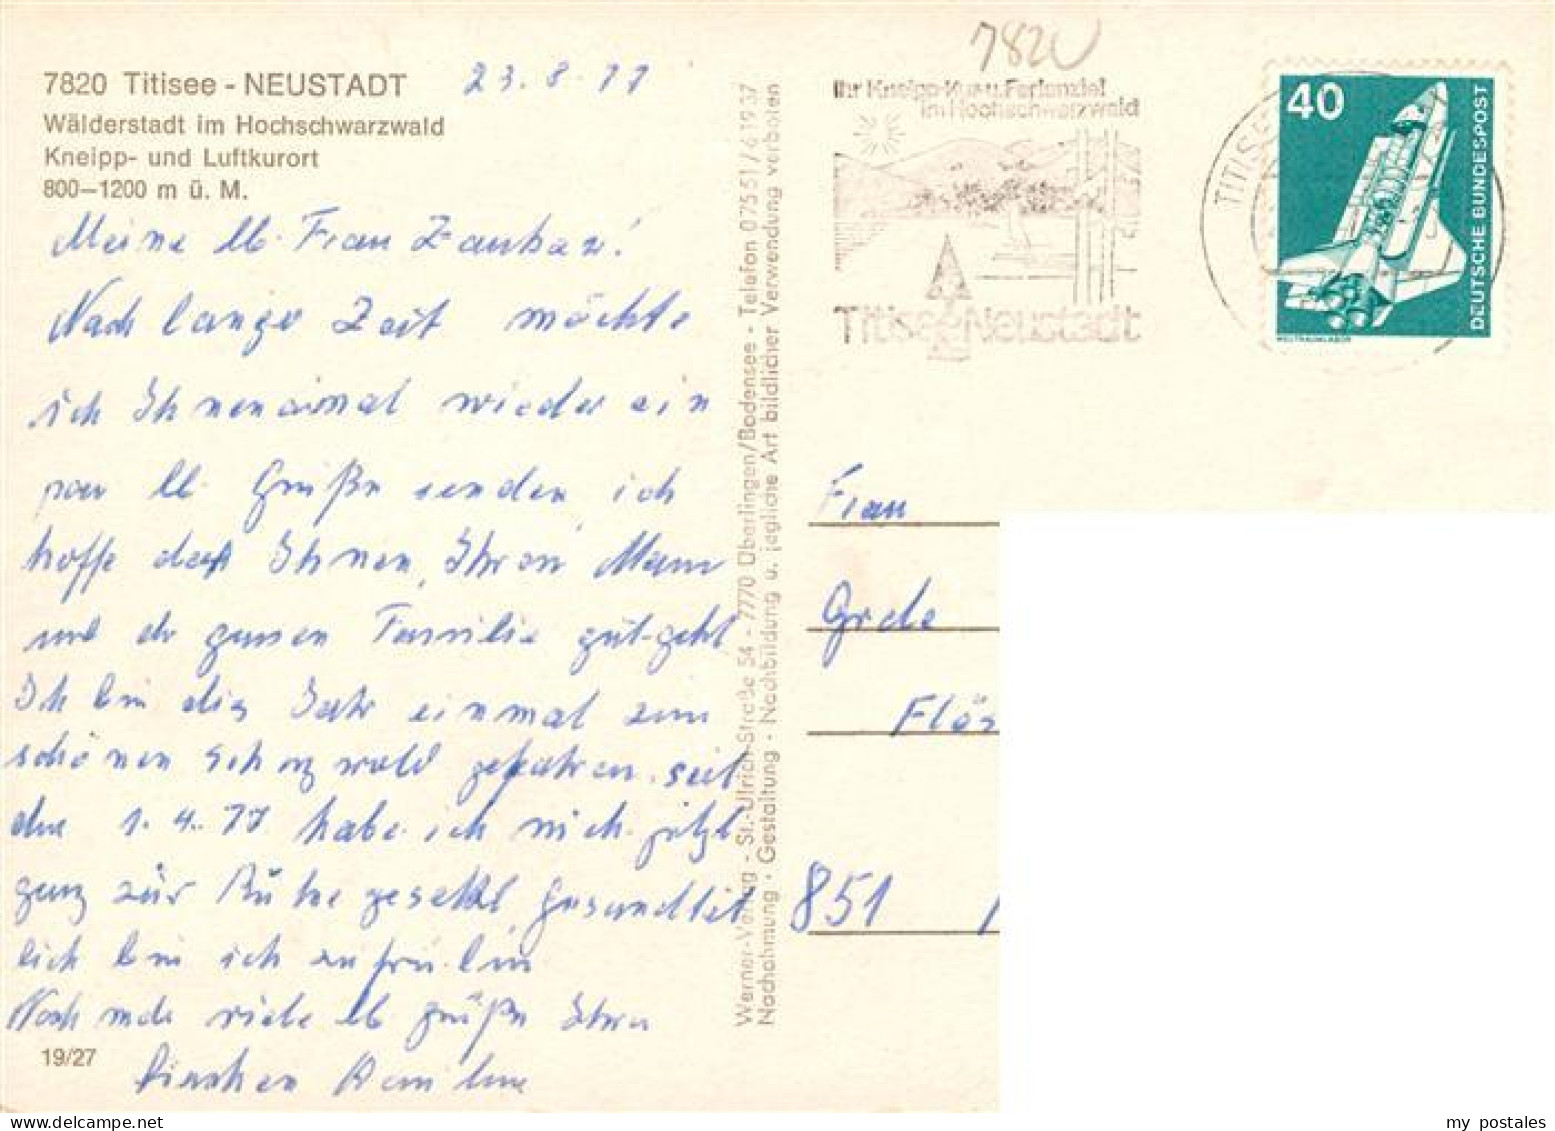 7820 Titisee - NEUSTADT
23.8.77
Wälderstadt im Hochschwarzwald
Kneipp- und Luftkurort
800–1200 m ü. M.
Meine lb. Frau
Nach langer Zeit möchte
ich Ihnen einmal wieder ein
par lb Grüße senden, ich
hoffe das Ihnen, Ihren Mann
und der ganzen Familie gut geht
Ich bin dies Jahr einmal zum
schönen Schwarzwald gefahren. seit
den 1.4.77 habe ich mich jetzt
ganz zür Rühe gesetzt, Gesundheit
lich bin ich zufrü.
Noch viele lb grüße Ihre
19/27
Werner-Verlag - St.-Ulrich-Straße 54 - 7770 Überlingen/Bodensee - Telefon 07551/61937
Nachahmung - Gestaltung - Nachbildung u. jegliche Art bildlicher Verwendung verboten
7820
Ihr Kneipp-Kur-u.Ferienziel
im Hochschwarzwald
Titisee-Neustadt
TITISEE
40
DEUTSCHE BUNDESPOST
WELTRAUMLABOR
Frau
Grete
851
my postales